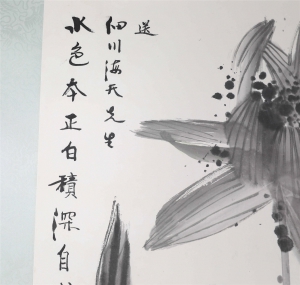 送
细川海天先生
水色本正白積深自